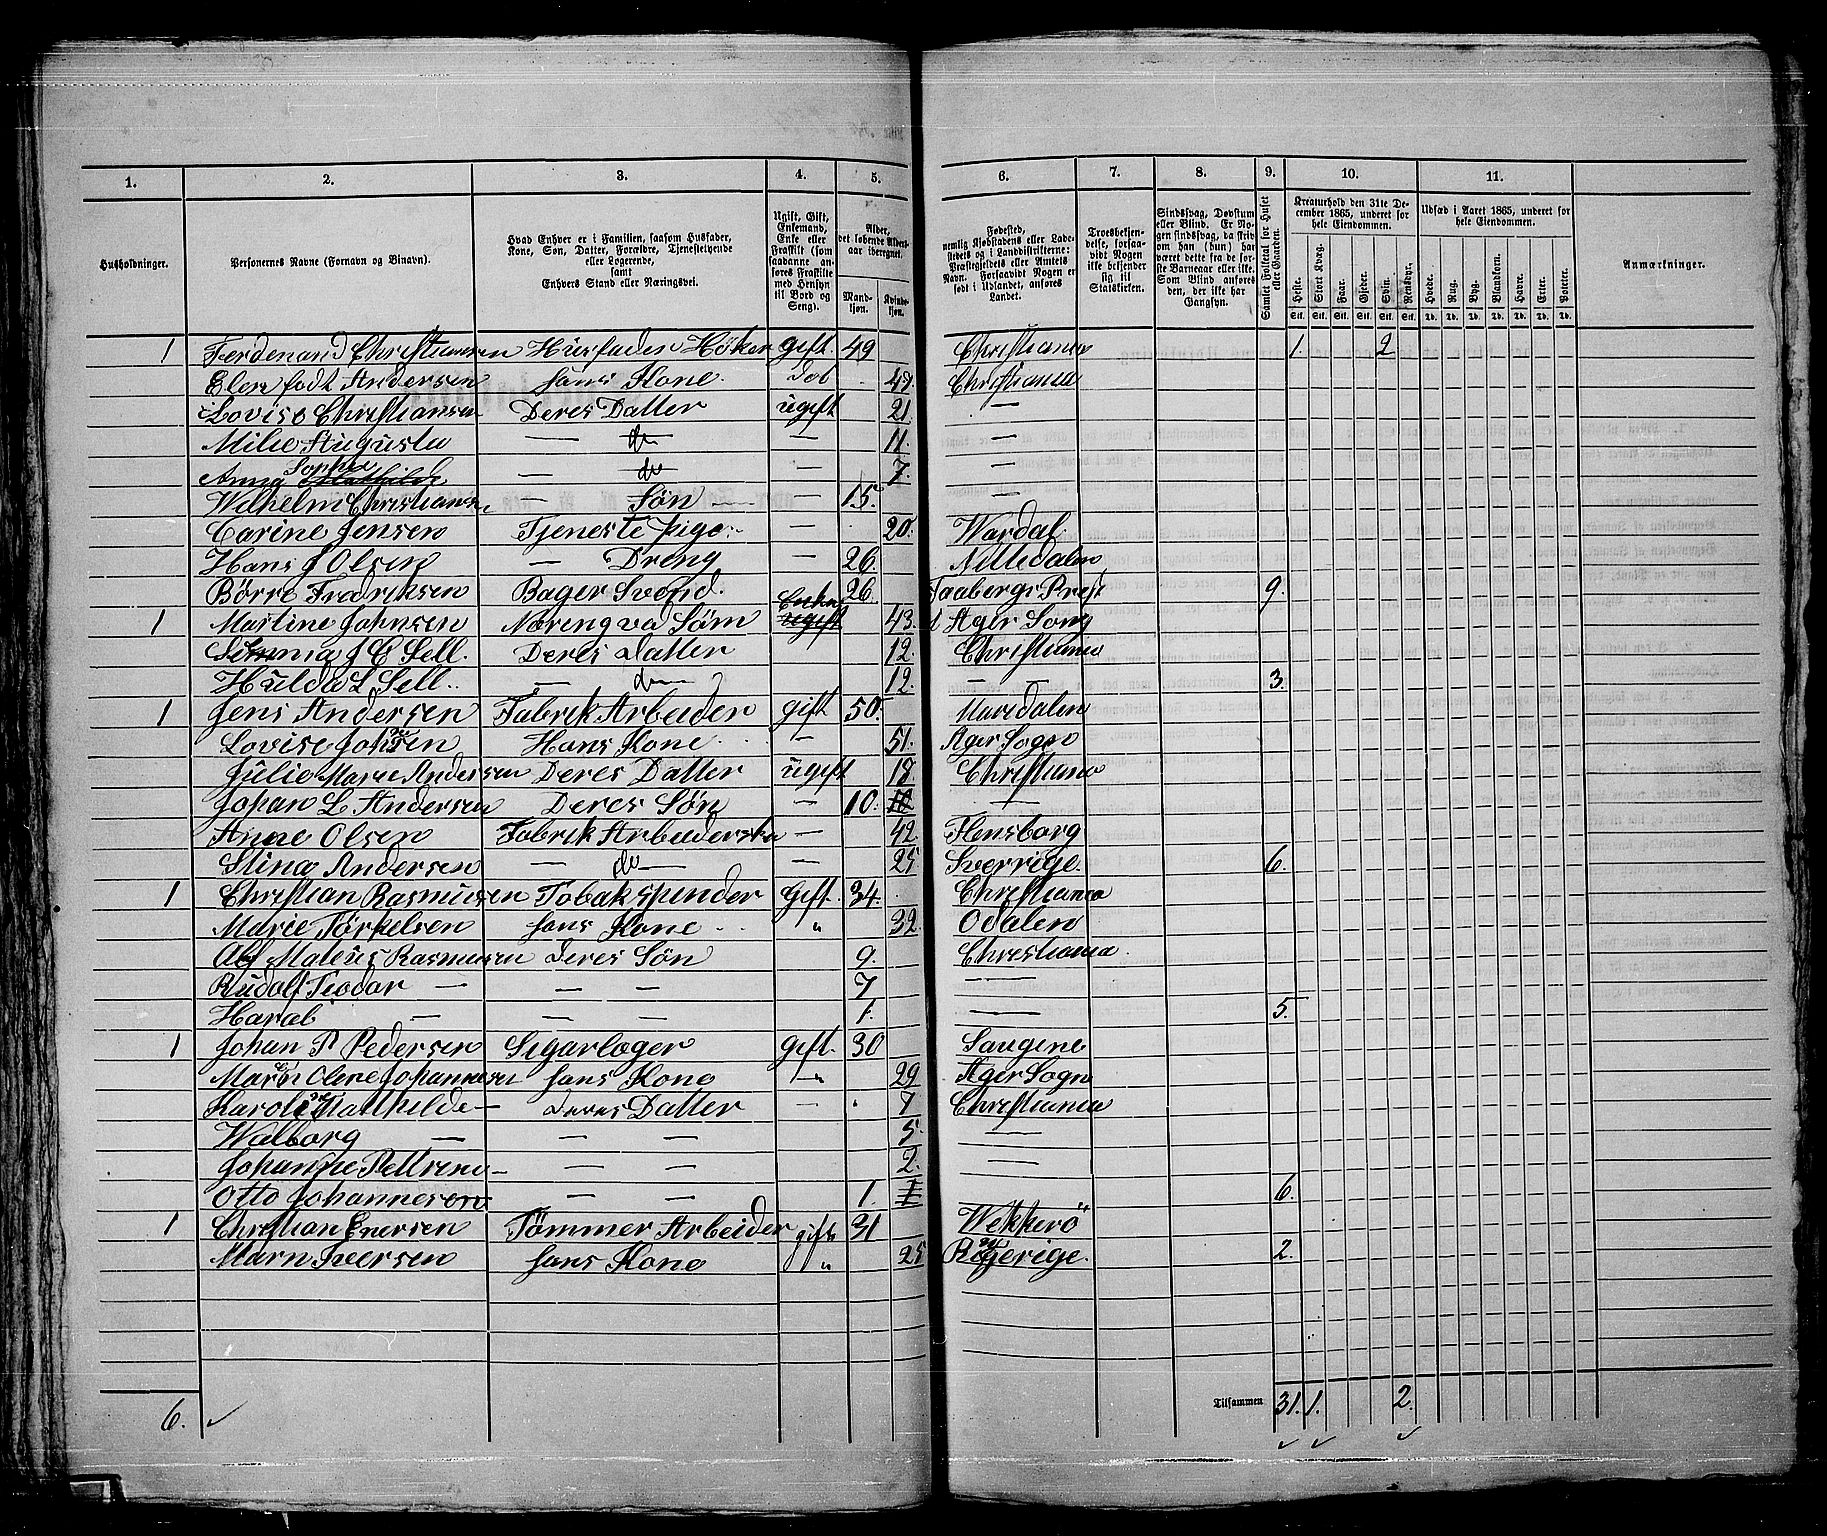 1. 2. 3. 4. 5. 6. 7. 8. 9. 10. 11.
Husholdninger.
Personernes Navne (Fornavn og Binavn).
Hvad Enhver er i Familien, saasom Husfader,
Kone, Søn, Datter, Forældre, Tjenestetyende
eller Logerende,
samt
Enhvers Stand eller Næringsvei.
Ugift, Gift,
Enkemand,
Enke eller
Fraskilt (som
saadanne anføres Fraskilte
med Hensyn
til Bord og
Seng).
Alder,
det løbende Aldersaar iberegnet.
Mandkjøn. Kvindekjøn.
Fødested,
nemlig Kjøbstadens eller Ladestedets og i Landdistrikterne:
Præstegjeldets eller Amtets
Navn. Forsaavidt Nogen er
født i Udlandet, anføres
Landet.
Troesbekjendelse, forsaavidt Nogen
ikke bekjender
sig til
Statskirken.
Sindssvag, Døvstum
eller Blind. Er Nogen sindssvag, da skrives
om han (hun) har
været dette fra de første Barneaar eller ikke.
Som Blind anføres
den, der ikke har
Gangsyn.
Samlet Folketal for Huset
eller Gaarden.
Kreaturhold den 31te December 1865, underet for
hele Eiendommen.
Heste. Stort Kvæg. Faar. Gjeder. Svin. Rensdyr.
Stk. Stk. Stk. Stk. Stk. Stk.
Udsæd i Aaret 1865, underet for
hele Eiendommen.
Hvede. Rug. Byg. Blandkorn. Havre. Erter. Poteter.
Td. Td. Td. Td. Td. Td. Td.
Anmærkninger.
1 Ferdenand Christiansen Husfader Höker gift. 49 Christiania 1. 2
Elen født Andersen hans Kone. do 49. Christiania
Lovise Christiansen Deres Datter ugift 21. —
Milie Augusta — do — 11. —
Anna Sophie Mathilde — do — 7. —
Wilhelm Christiansen — Søn — 15. —
Carine Jensen Tjeneste Pige — 20. Wardal
Hans J Olsen — Dreng — 26. Nittedalen
Börre Fredriksen Bager Svend. 26. Faabergs Prest 9.
1 Martine Johnsen Næring ved Søm Enke ugift 43. Ager Song
J C Sell. Deres Datter 12. Christiania
Hulda L Sell. — do — 12. — 3.
1 Jens Andersen Fabrik Arbeider gift 50. Maredalen
Lovise Johnsen Hans Kone. — 51. Ager Sogn
Julie Marie Andersen Deres Datter ugift 18. Christiania
Johan L Andersen Deres Søn — 10. 10 —
Anne Olsen Fabrik Arbeiderska — 42. Flensborg
Stina Andersen — do — — 25 Sverrige. 6.
1 Christian Rasmusen Tobakspinder Gift. 34. Christiania
Marie Törkelsen hans Kone „ 32. Odalen
Alf Mateus Rasmusen deres Søn 9. Christiania.
Rudolf Teodor — — — 7 —
Harald — — — 1. — 5.
1 Johan P Pedersen Sigarlager gift. 30 Saugene
Maren Oline Johannesen hans Kone —„ 29 Ager Sogn
Karoline Mathilde — deres Datter — 7 Christiania
Walborg — — — 5. —
Johanne Pettrine — — — 2. —
Otto Johannesen — — 1. 1 6.
1 Christian Enersen Tömmer Arbeider gift 31 Wekkerö
Marn Iversen hans Kone „ 25 Ringerige. 2.
6. Tilsammen 31. 1. 2.